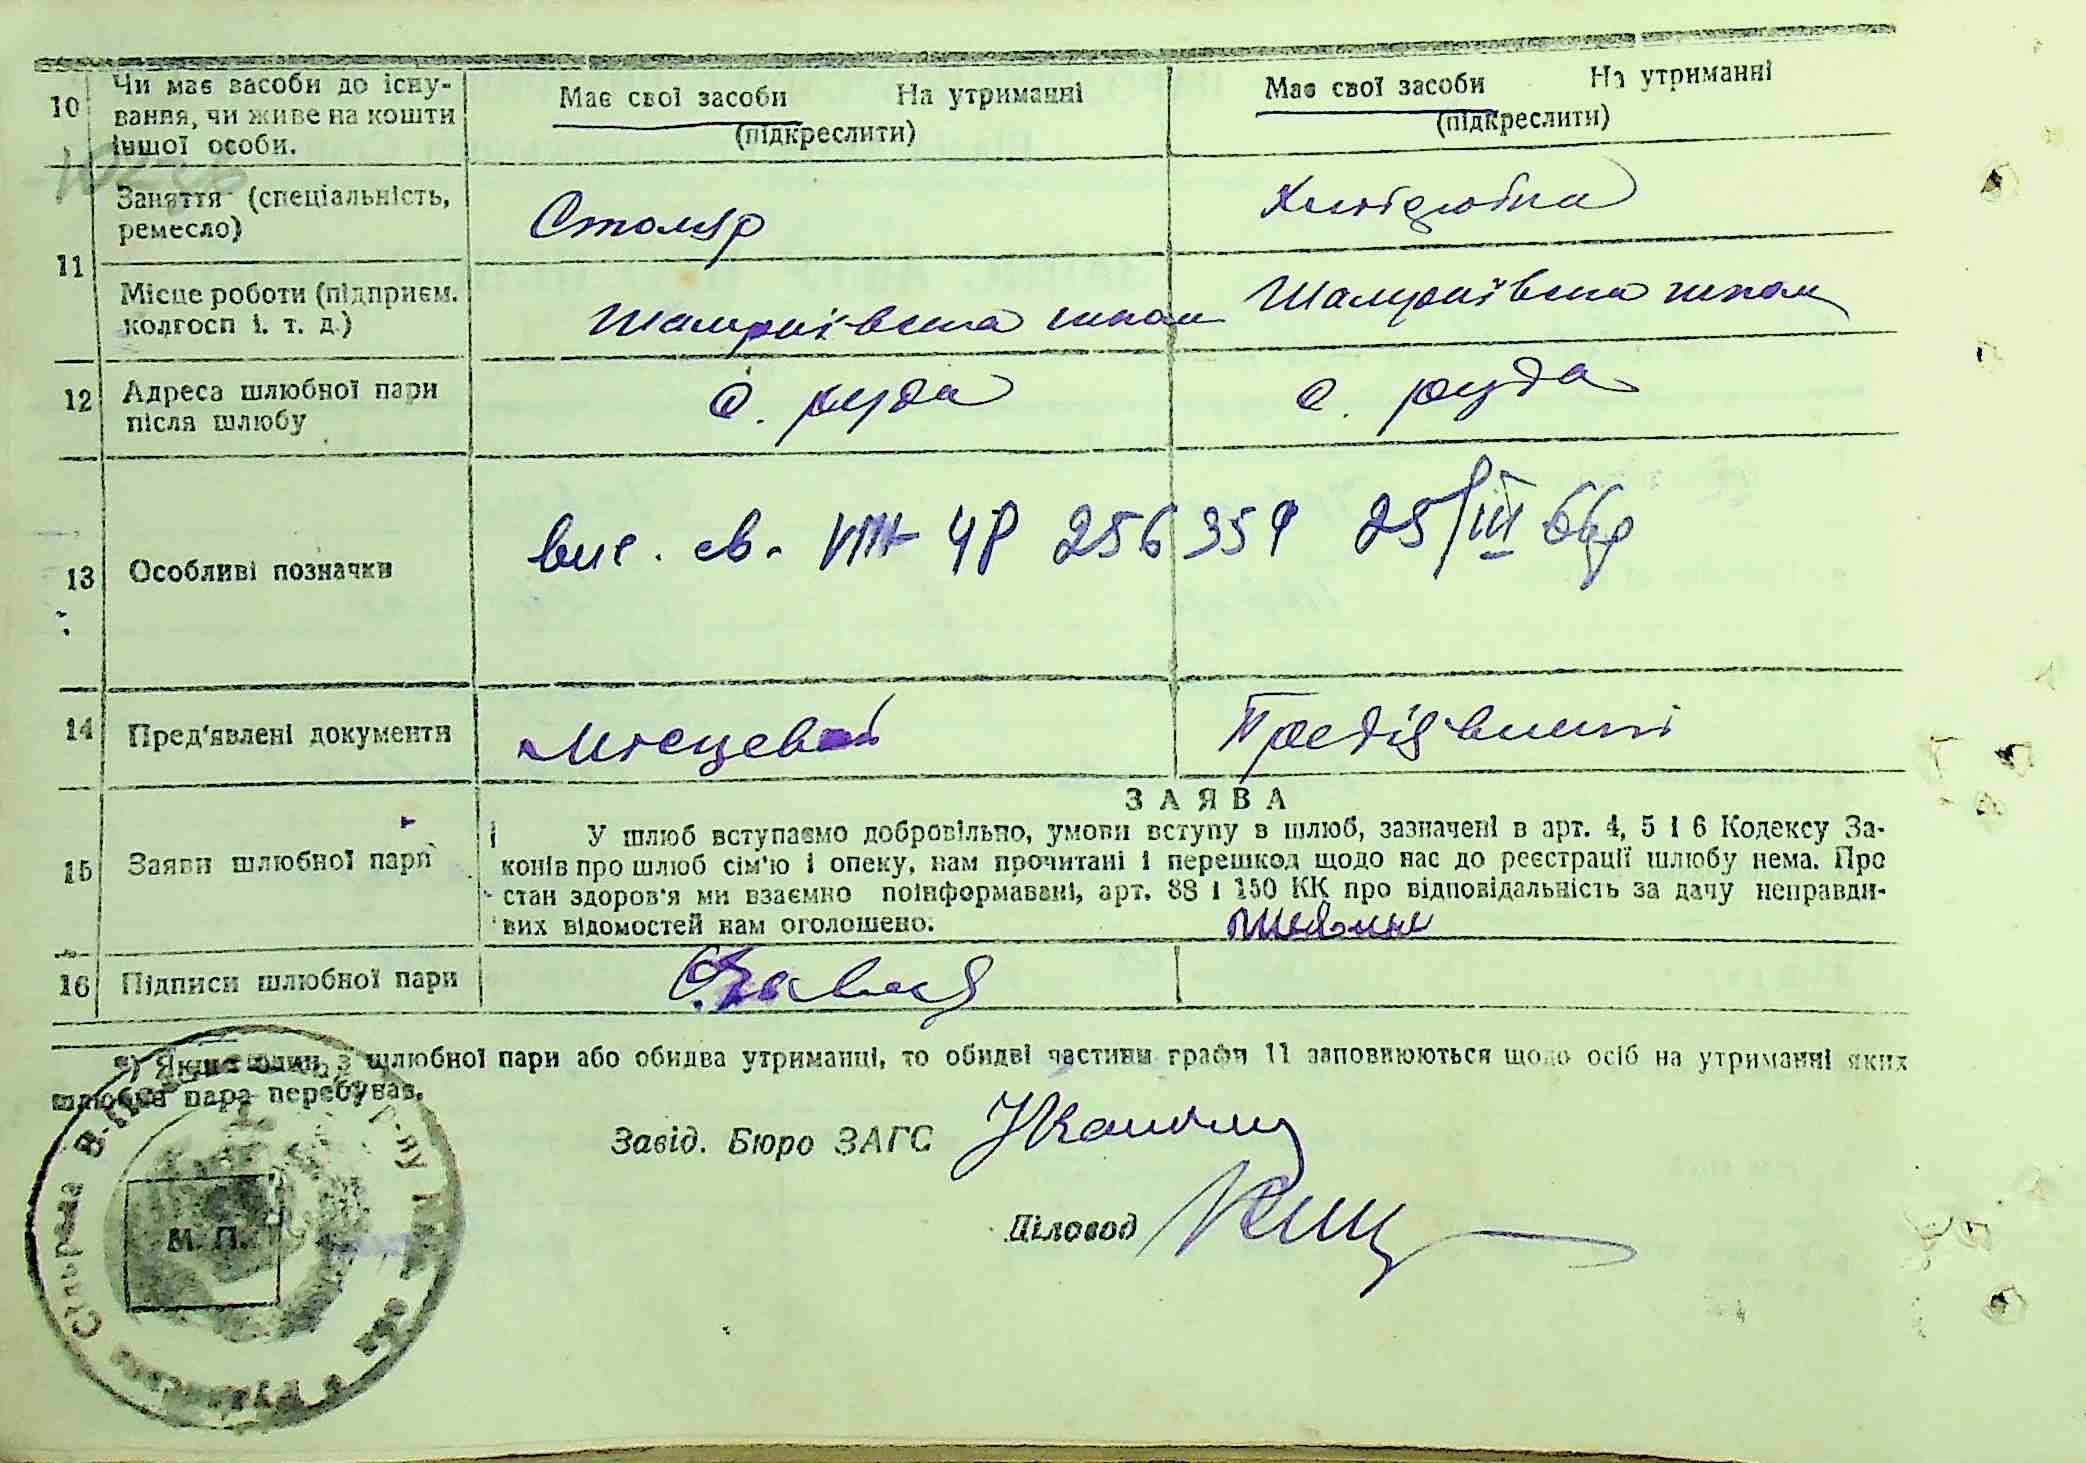 10 Чи має засоби до існу-
вання, чи живе на кошти
іншої особи.
Має свої засоби На утриманні
(підкреслити)
Має свої засоби На утриманні
(підкреслити)
11
Заняття (спеціальність,
ремесло)
Столяр
Місце роботи (підприєм.
колгосп і. т. д.)
12 Адреса шлюбної пари
після шлюбу
с. Руда
с. Руда
13 Особливі позначки
вис. св. 256359 25/III 66р
14 Пред'явлені документи
Місцевий
Пред'явлені
15 Заяви шлюбної пари
ЗАЯВА
У шлюб вступаємо добровільно, умови вступу в шлюб, зазначені в арт. 4, 5 і 6 Кодексу За-
конів про шлюб сім'ю і опеку, нам прочитані і перешкод щодо нас до реєстрації шлюбу нема. Про
стан здоров'я ми взаємно поінформавані, арт. 88 і 150 КК про відповідальність за дачу неправди-
вих відомостей нам оголошено.
16 Підписи шлюбної пари
*) Якщо один з шлюбної пари або обидва утриманці, то обидві частини графи 11 заповнюються щодо осіб на утриманні яких
шлюбна пара перебуває.
Завід. Бюро ЗАГС
Діловод
М. П.